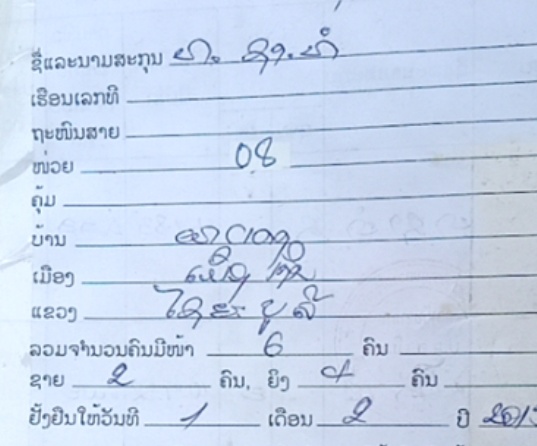 ຊື່ແລະນາມສະກຸນ
ເຮືອນເລກທີ
ຖະໜົນສາຍ
ໜ່ວຍ 08
ຄຸ້ມ
ບ້ານ
ເມືອງ
ແຂວງ ໄຊຍະບູລີ
ລວມຈຳນວນຄົນມີໜ້າ 6 ຄົນ
ຊາຍ 2 ຄົນ, ຍິງ 4 ຄົນ
ຢັ້ງຢືນໃຫ້ວັນທີ 1 ເດືອນ 2 ປີ